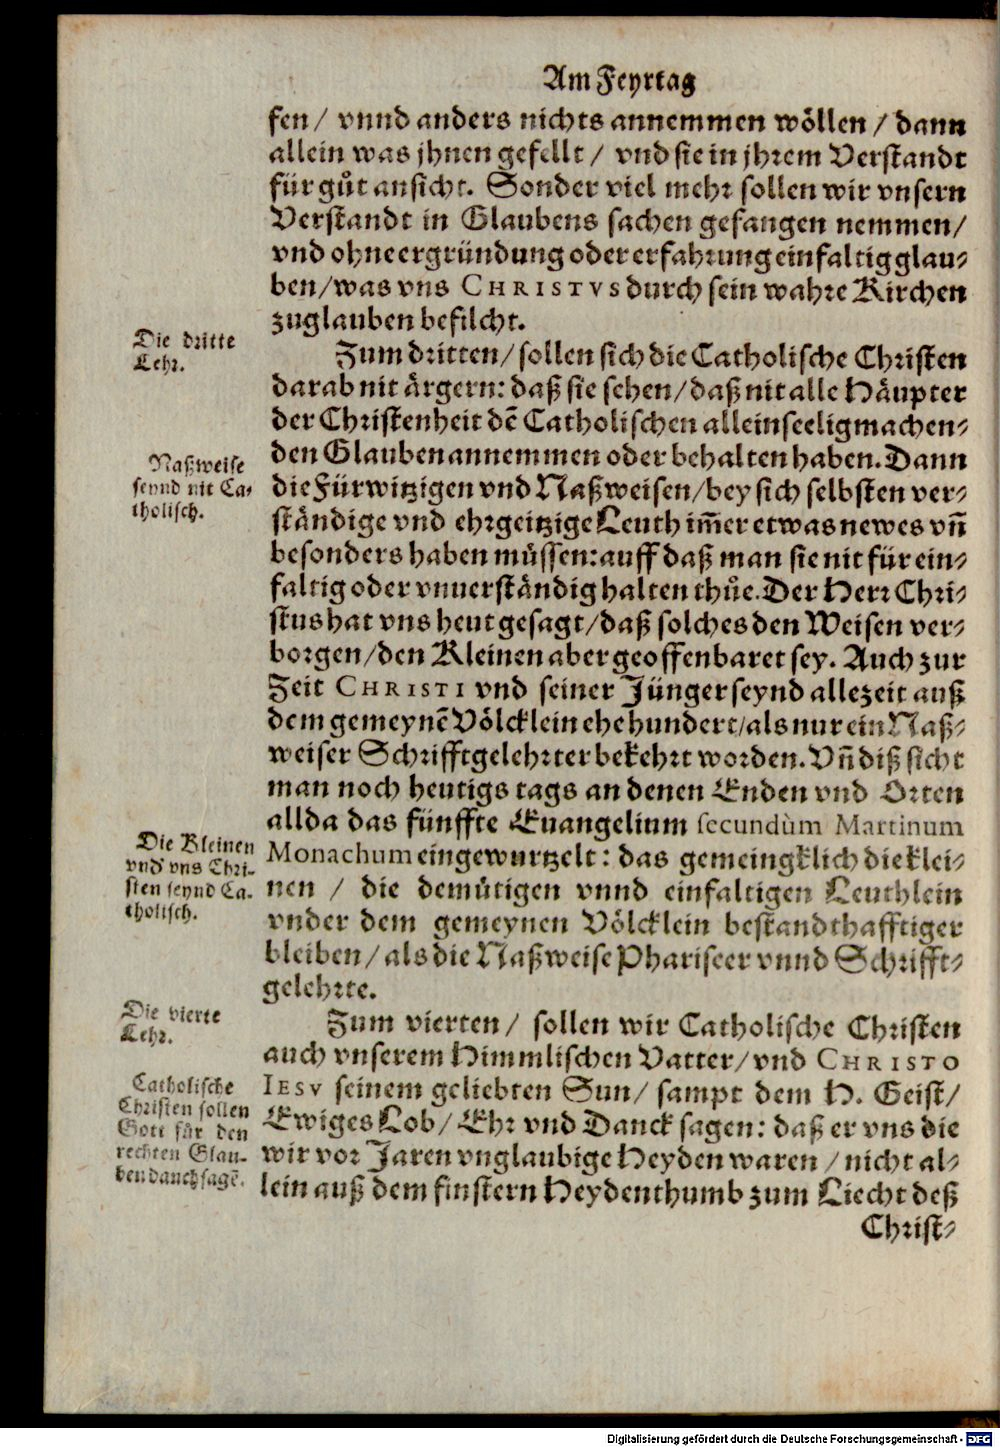 Am Feyrtag
fen / vnnd anders nichts annemmen wöllen / dann
allein was jhnen gefellt / vnd sie in jhrem Verstandt
für gůt ansicht. Sonder viel mehr sollen wir vnsern
Verstandt in Glaubens sachen gefangen nemmen /
vnd ohne ergründung oder erfahrung einfaltig glau-
ben / was vns CHRISTVS durch sein wahre Kirchen
zuglauben befilcht.
Die dritte
Lehr.
Zum dritten / sollen sich die Catholische Christen
darab nit ärgern: daß sie sehen / daß nit alle Häupter
der Christenheit dē Catholischen alleinseeligmachen-
den Glauben annemmen oder behalten haben. Dann
Naßweise
seynd nit Ca-
tholisch.
die Fürwitzigen vnd Naßweisen / bey sich selbsten ver-
ständige vnd ehrgeitzige Leuth im̄er etwas newes vn̄
besonders haben müssen: auff daß man sie nit für ein-
faltig oder vnuerständig halten thůe. Der Herr Chri-
stus hat vns heut gesagt / daß solches den Weisen ver-
borgen / den Kleinen aber geoffenbaret sey. Auch zur
Zeit CHRISTI vnd seiner Jünger seynd allezeit auß
dem gemeynē Völcklein ehe hundert / als nur ein Naß-
weiser Schrifftgelehrter bekehrt worden. Vn̄ diß sicht
man noch heutigs tags an denen Enden vnd Orten
allda das fünffte Euangelium secundùm Martinum
Die Kleinen
vnd vns Chri-
sten seynd Ca-
tholisch.
Monachum eingewurtzelt: das gemeingklich die klei-
nen / die demütigen vnnd einfaltigen Leuthlein
vnder dem gemeynen Völcklein bestandthafftiger
bleiben / als die Naßweise Phariseer vnnd Schrifft-
gelehrte.
Die vierte
Lehr.
Zum vierten / sollen wir Catholische Christen
auch vnserem Himmlischen Vatter / vnd CHRISTO
Catholische
Christen sollen
Gott für den
rechten Glau-
ben dancksagē.
IESV seinem geliebten Sun / sampt dem H. Geist /
Ewiges Lob / Ehr vnd Danck sagen: daß er vns die
wir vor Jaren vnglaubige Heyden waren / nicht al-
lein auß dem finstern Heydenthumb zum Liecht deß
Christ-
Digitalisierung gefördert durch die Deutsche Forschungsgemeinschaft - DFG